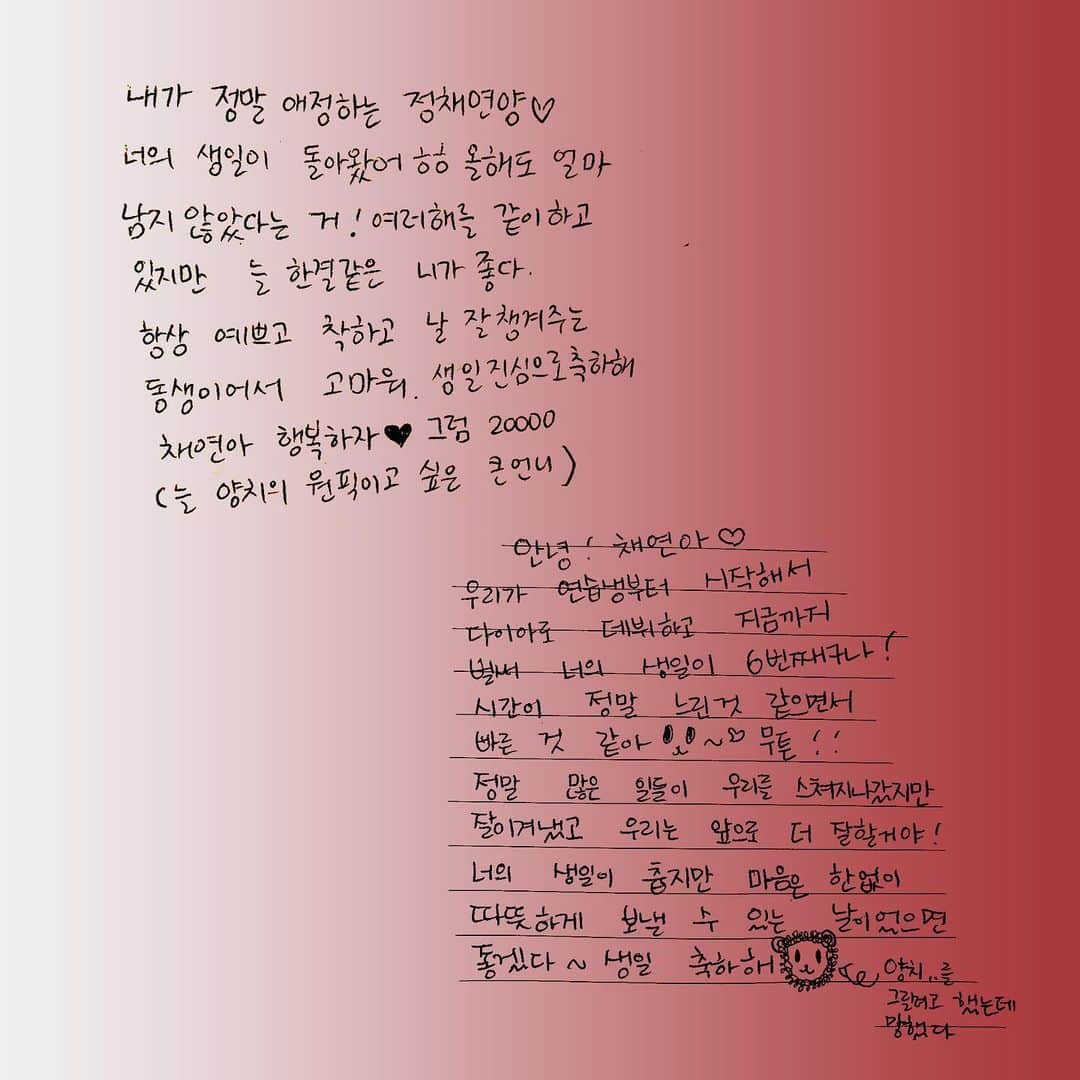 내가 정말 애정하는 정채연양♡
너의 생일이 돌아왔어 ㅎㅎ 올해도 얼마
남지 않았다는 거! 여러해를 같이하고
있지만 늘 한결같은 니가 좋다.
항상 예쁘고 착하고 날 잘챙겨주는
동생이어서 고마워. 생일진심으로축하해
채연아 행복하자♥ 그럼 20000
(늘 양치의 원픽이고 싶은 큰언니)
안녕! 채연아♡
우리가 연습생부터 시작해서
다이아로 데뷔하고 지금까지
벌써 너의 생일이 6번째구나!
시간이 정말 느린것 같으면서
빠른 것 같아 ~♡ 무튼!!
정말 많은 일들이 우리를 스쳐지나갔지만
잘이겨냈고 우리는 앞으로 더 잘할거야!
너의 생일이 춥지만 마음은 한없이
따뜻하게 보낼 수 있는 날이었으면
좋겠다~ 생일 축하해
양치..를
그릴려고 했는데
망했다